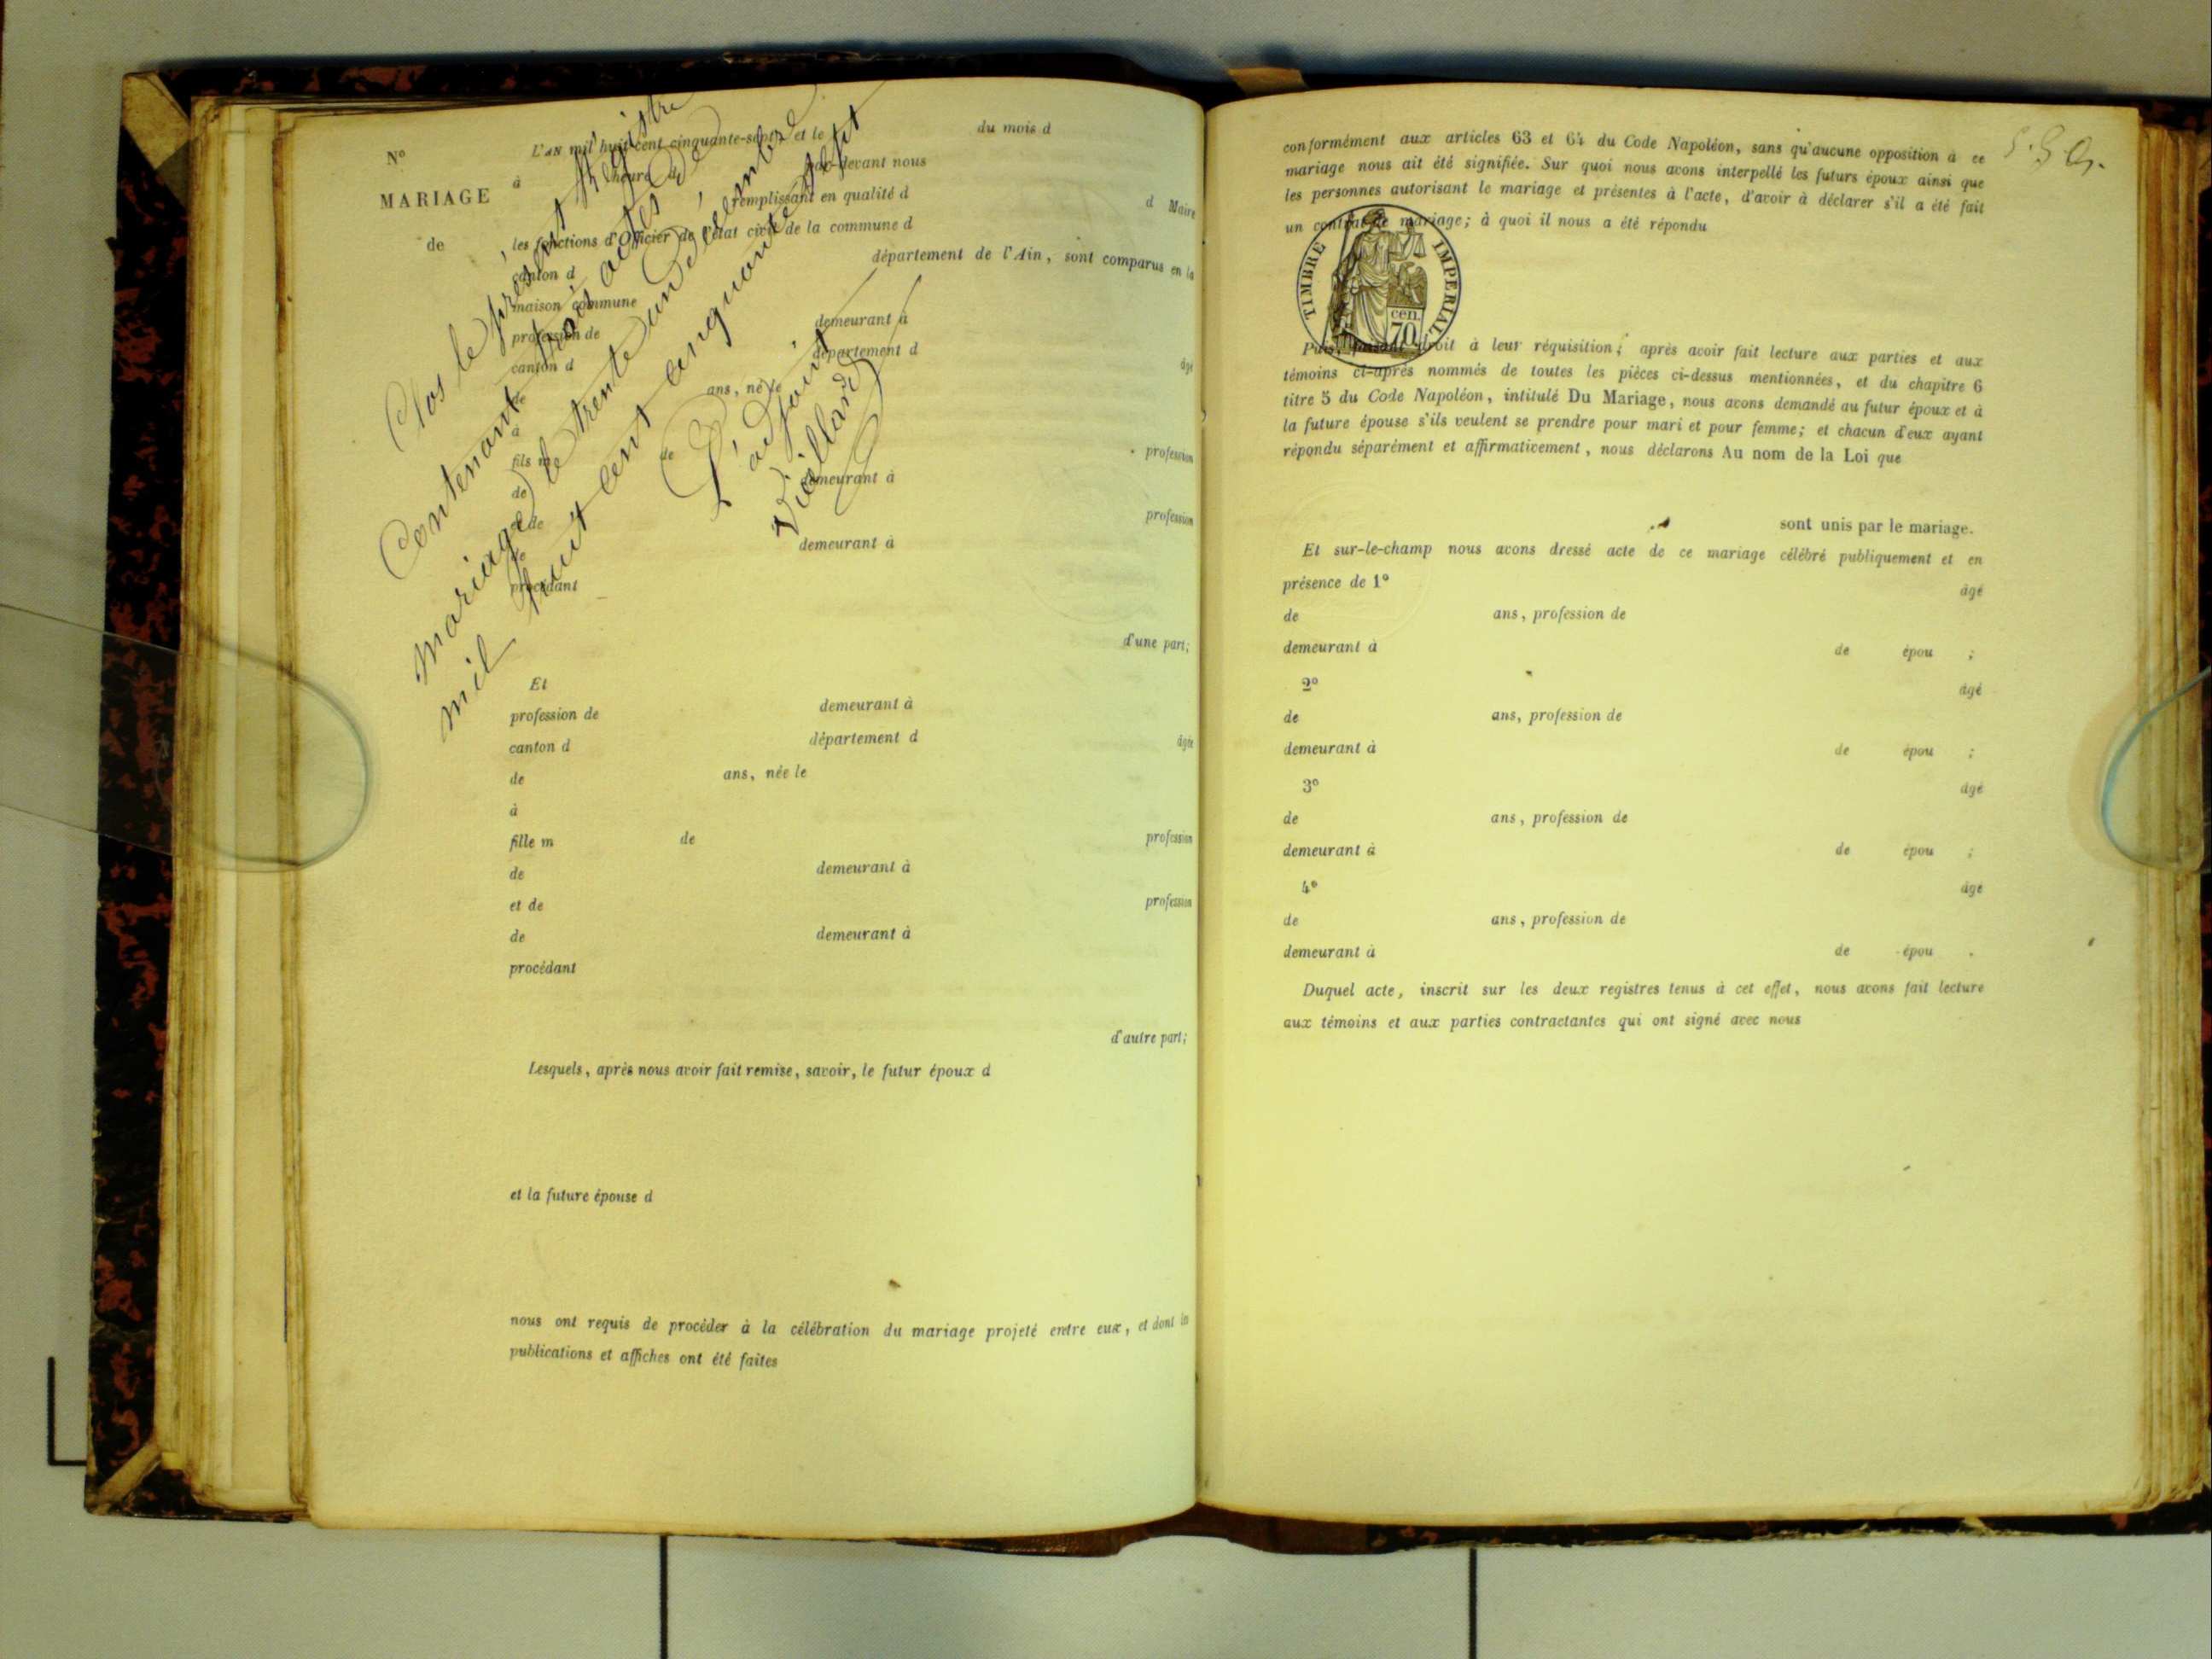 Nº
MARIAGE
de
L'AN mil huit cent cinquante-sept, et le du mois d
à heure d par-devant nous
remplissant en qualité d d Maire
les fonctions d'Officier de l'état civil de la commune d
canton d département de l'Ain, sont comparus en la
maison commune
profession de demeurant à
canton d département d âgé
de ans, né le
à
fils m de profession
de demeurant à
et de profession
de demeurant à
procédant
d'une part;
Clos le présent Registre
Contenant trois actes de
mariage, le trente un décembre
mil huit cent cinquante sept
L'adjoint
Vieilland
Et
profession de demeurant à
canton d département d âgée
de ans, née le
à
fille m de profession
de demeurant à
et de profession
de demeurant à
procédant
d'autre part;
Lesquels, après nous avoir fait remise, savoir, le futur époux d
et la future épouse d
nous ont requis de procéder à la célébration du mariage projeté entre eux, et dont les
publications et affiches ont été faites
conformément aux articles 63 et 64 du Code Napoléon, sans qu'aucune opposition à ce
mariage nous ait été signifiée. Sur quoi nous avons interpellé les futurs époux ainsi que
les personnes autorisant le mariage et présentes à l'acte, d'avoir à déclarer s'il a été fait
un contrat de mariage; à quoi il nous a été répondu
TIMBRE IMPERIAL
70 cen.
Puis, faisant droit à leur réquisition; après avoir fait lecture aux parties et aux
témoins ci-après nommés de toutes les pièces ci-dessus mentionnées, et du chapitre 6
titre 5 du Code Napoléon, intitulé Du Mariage, nous avons demandé au futur époux et à
la future épouse s'ils veulent se prendre pour mari et pour femme; et chacun d'eux ayant
répondu séparément et affirmativement, nous déclarons Au nom de la Loi que
sont unis par le mariage.
Et sur-le-champ nous avons dressé acte de ce mariage célébré publiquement et en
présence de 1º âgé
de ans, profession de
demeurant à de épou ;
2º âgé
de ans, profession de
demeurant à de épou ;
3º âgé
de ans, profession de
demeurant à de épou ;
4º âgé
de ans, profession de
demeurant à de épou .
Duquel acte, inscrit sur les deux registres tenus à cet effet, nous avons fait lecture
aux témoins et aux parties contractantes qui ont signé avec nous